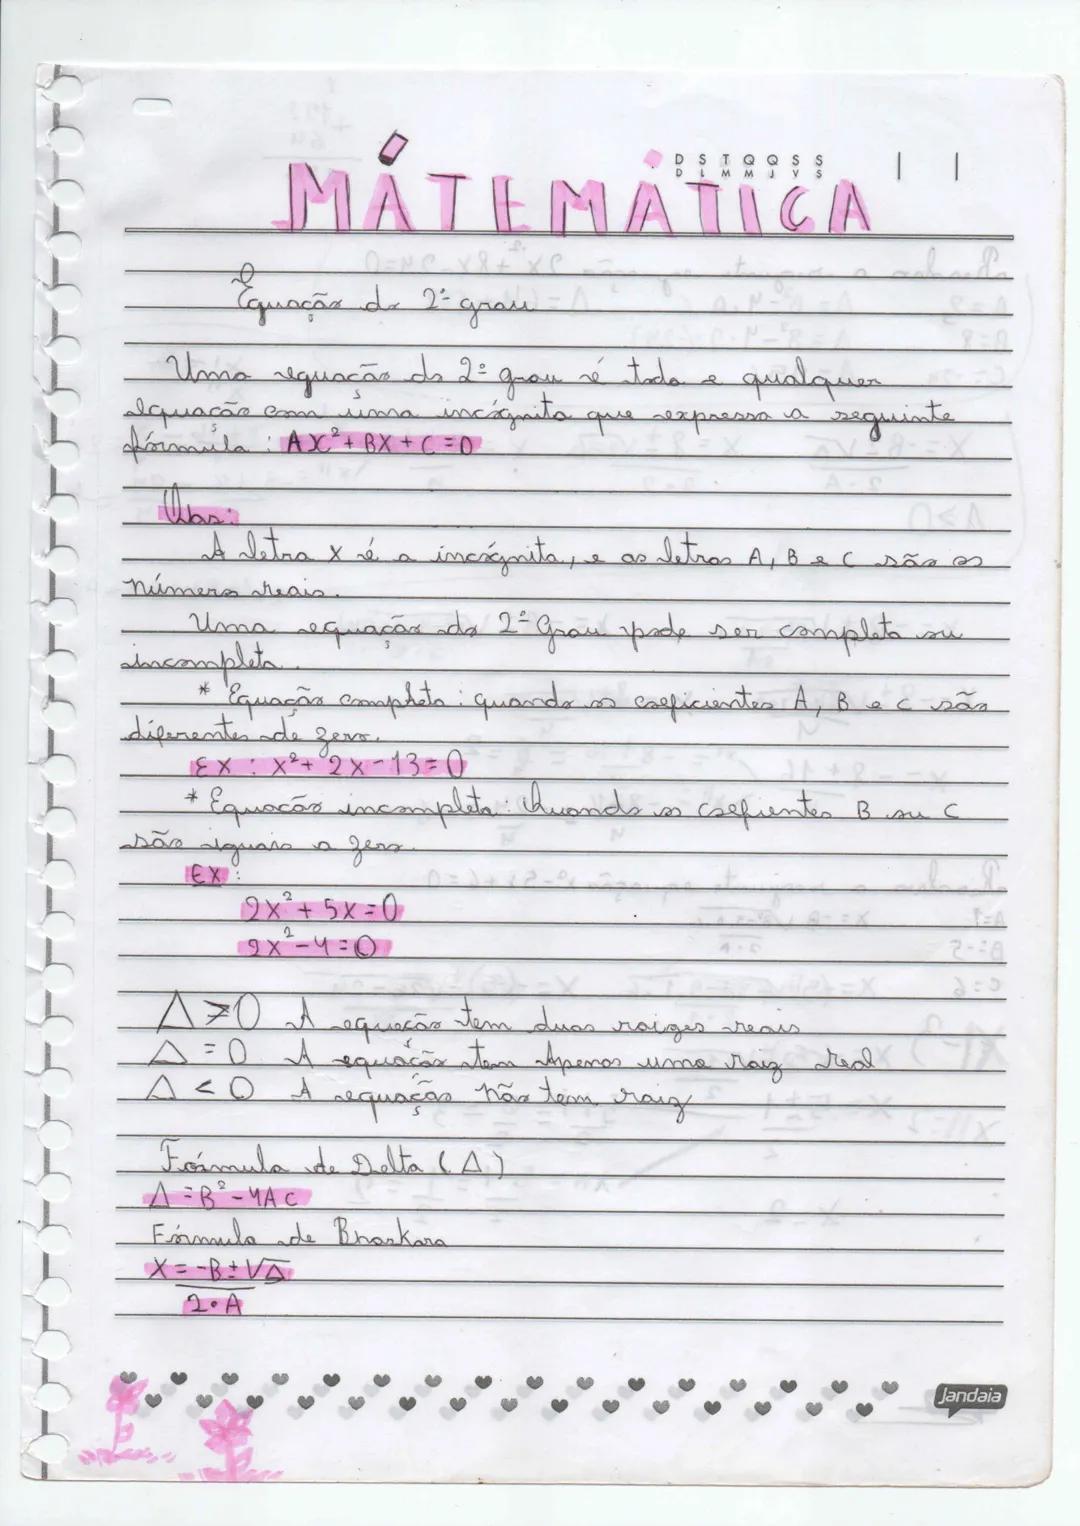 MÁTEMÁTICA
D S T Q Q S S
D L M M J V S
Equação do 2º grau
Uma equação do 2º grau é toda e qualquer
equação com uma incógnita que expressa a seguinte
fórmula: AX²+BX+C=0
Obs:
A letra X é a incógnita, e as letras A, B e C são os
números reais.
Uma equação do 2º Grau pode ser completa ou
incompleta.
* Equação completa: quando os coeficientes A, B e C são
diferentes de zero.
EX: X²+2X-13=0
* Equação incompleta: Quando os coefientes B ou C
são iguais a zero.
EX:
2X²+5X=0
2X²-4=0
Δ>0 A equação tem duas raizes reais
Δ=0 A equação tem Apenas uma raiz real
Δ<0 A equação não tem raiz
Fórmula de Delta (Δ)
Δ=B²-4AC
Fórmula de Bhaskara
X=-B±√Δ
2•A
Jandaia